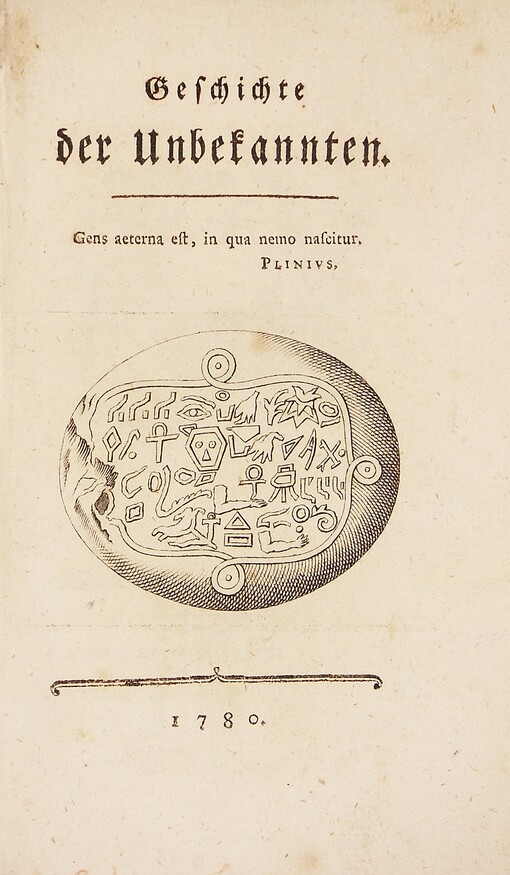 Geſchichte
der Unbekannten.
Gens aeterna eſt, in qua nemo naſcitur.
PLINIVS,
1780.